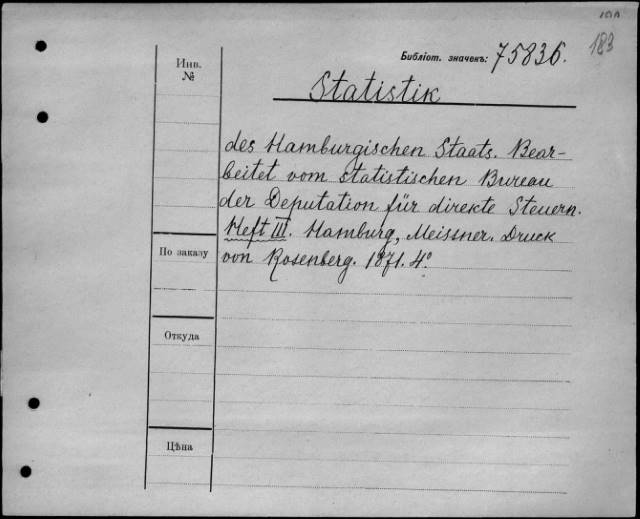 183
Библіот. значекъ: 75836.
Инв.
№
Statistik
des Hamburgischen Staats. Bear-
beitet vom statistischen Bureau
der Deputation für direkte Steuern.
Heft III. Hamburg, Meissner. Druck
von Rosenberg. 1871. 4°
По заказу
Откуда
Цѣна